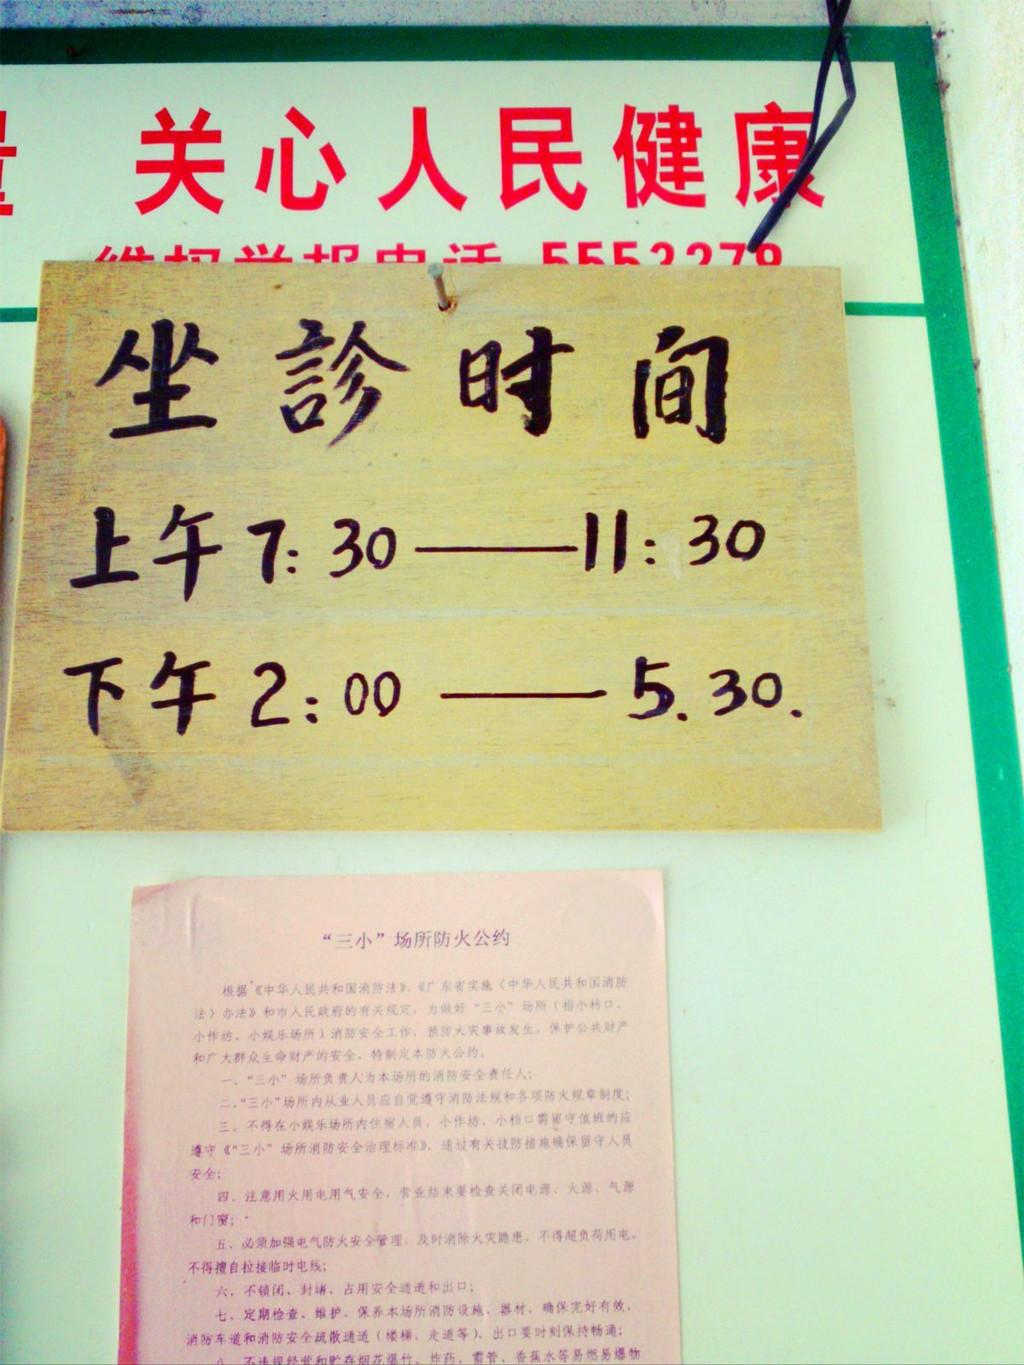 关心人民健康
维权举报电话 5553279
坐診时间
上午7:30——11:30
下午2:00——5.30.
“三小”场所防火公约
根据《中华人民共和国消防法》、《广东省实施〈中华人民共和国消防
法〉办法》和市人民政府的有关规定，为做好“三小”场所（指小档口、
小作坊、小娱乐场所）消防安全工作，预防火灾事故发生，保护公共财产
和广大群众生命财产的安全，特制定本防火公约。
一、“三小”场所负责人为本场所的消防安全责任人；
二、“三小”场所内从业人员应自觉遵守消防法规和各项防火规章制度；
三、不得在小娱乐场所内住宿人员，小作坊、小档口需留守值班的应
遵守《“三小”场所消防安全治理标准》，通过有关技防措施确保留守人员
安全；
四、注意用火用电用气安全，营业结束要检查关闭电源、火源、气源
和门窗；
五、必须加强电气防火安全管理，及时消除火灾隐患，不得超负荷用电，
不得擅自拉接临时电线；
六、不锁闭、封堵、占用安全通道和出口；
七、定期检查、维护、保养本场所消防设施、器材，确保完好有效，
消防车道和消防安全疏散通道（楼梯、走道等）、出口要时刻保持畅通；
八、不违规经营和贮存烟花爆竹、炸药、雷管、香蕉水等易燃易爆物